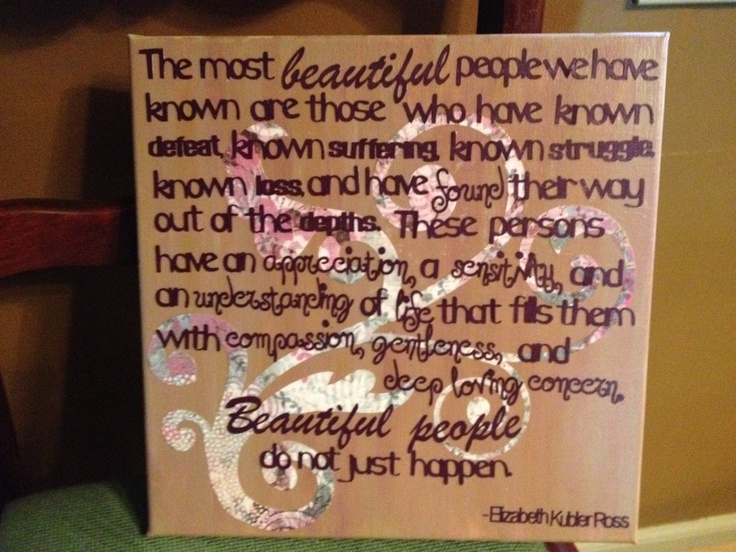 The most beautiful people we have
known are those who have known
defeat, known suffering, known struggle,
known loss, and have found their way
out of the depths. These persons
have an appreciation, a sensitivity, and
an understanding of life that fills them
with compassion, gentleness, and
deep loving concern.
Beautiful people
do not just happen.
-Elizabeth Kubler Ross